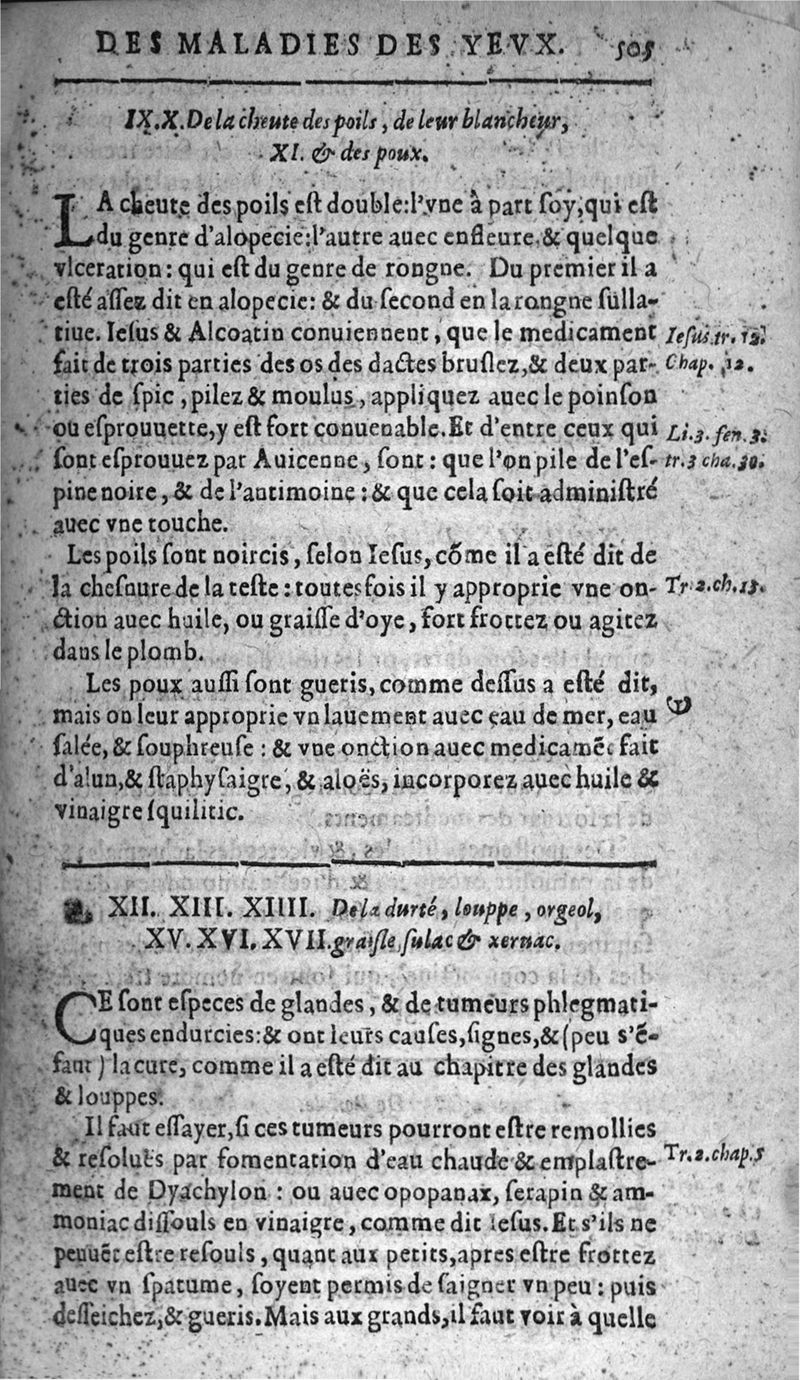 DES MALADIES DES YEVX. 505
IX.X. De la cheute des poils, de leur blancheur,
XI. & des poux.
LA cheute des poils eſt double: l'vne à part ſoy, qui eſt
du genre d'alopecie: l'autre auec enfleure, & quelque
vlceration: qui eſt du genre de rongne. Du premier il a
eſté aſſez dit en alopecie: & du ſecond en la rongne ſulla-
tiue. Ieſus & Alcoatin conuiennent, que le medicament Ieſus. tr.
fait de trois parties des os des dactes bruſlez, & deux par- Chap. 12.
ties de ſpic, pilez & moulus, appliquez auec le poinſon
ou eſprouuette, y eſt fort conuenable. Et d'entre ceux qui Li.3. fen.3.
ſont eſprouuez par Auicenne, ſont: que l'on pile de l'eſ- tr.3 cha.30.
pine noire, & de l'antimoine: & que cela ſoit adminiſtré
auec vne touche.
Les poils ſont noircis, ſelon Ieſus, cõme il a eſté dit de
la cheſnure de la teſte: toutesfois il y approprie vne on- Tr.2.ch.13.
ction auec huile, ou graiſſe d'oye, fort frottez ou agitez
dans le plomb.
Les poux auſſi ſont gueris, comme deſſus a eſté dit,
mais on leur approprie vn lauement auec eau de mer, eau
ſalée, & ſouphreuſe: & vne onction auec medicamẽt fait
d'alun, & ſtaphyſaigre, & aloës, incorporez auec huile &
vinaigre ſquilitic.
XII. XIII. XIIII. De la durté, louppe, orgeol,
XV. XVI. XVII. graiſle, ſulac & xernac.
CE ſont eſpeces de glandes, & de tumeurs phlegmati-
ques endurcies: & ont leurs cauſes, ſignes, & (peu s'ẽ-
faut) la cure, comme il a eſté dit au chapitre des glandes
& louppes.
Il faut eſſayer, ſi ces tumeurs pourront eſtre remollies
& reſoluës par fomentation d'eau chaude & emplaſtre- Tr.2.chap.5
ment de Dyachylon: ou auec opopanax, ſerapin & am-
moniac diſſouls en vinaigre, comme dit Ieſus. Et s'ils ne
peuuẽt eſtre reſouls, quant aux petits, apres eſtre frottez
auec vn ſpatume, ſoyent permis de ſaigner vn peu: puis
deſſeichez, & gueris. Mais aux grands, il faut voir à quelle